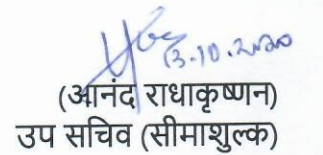 13.10.2020
(आनंद राधाकृष्णन)
उप सचिव (सीमाशुल्क)